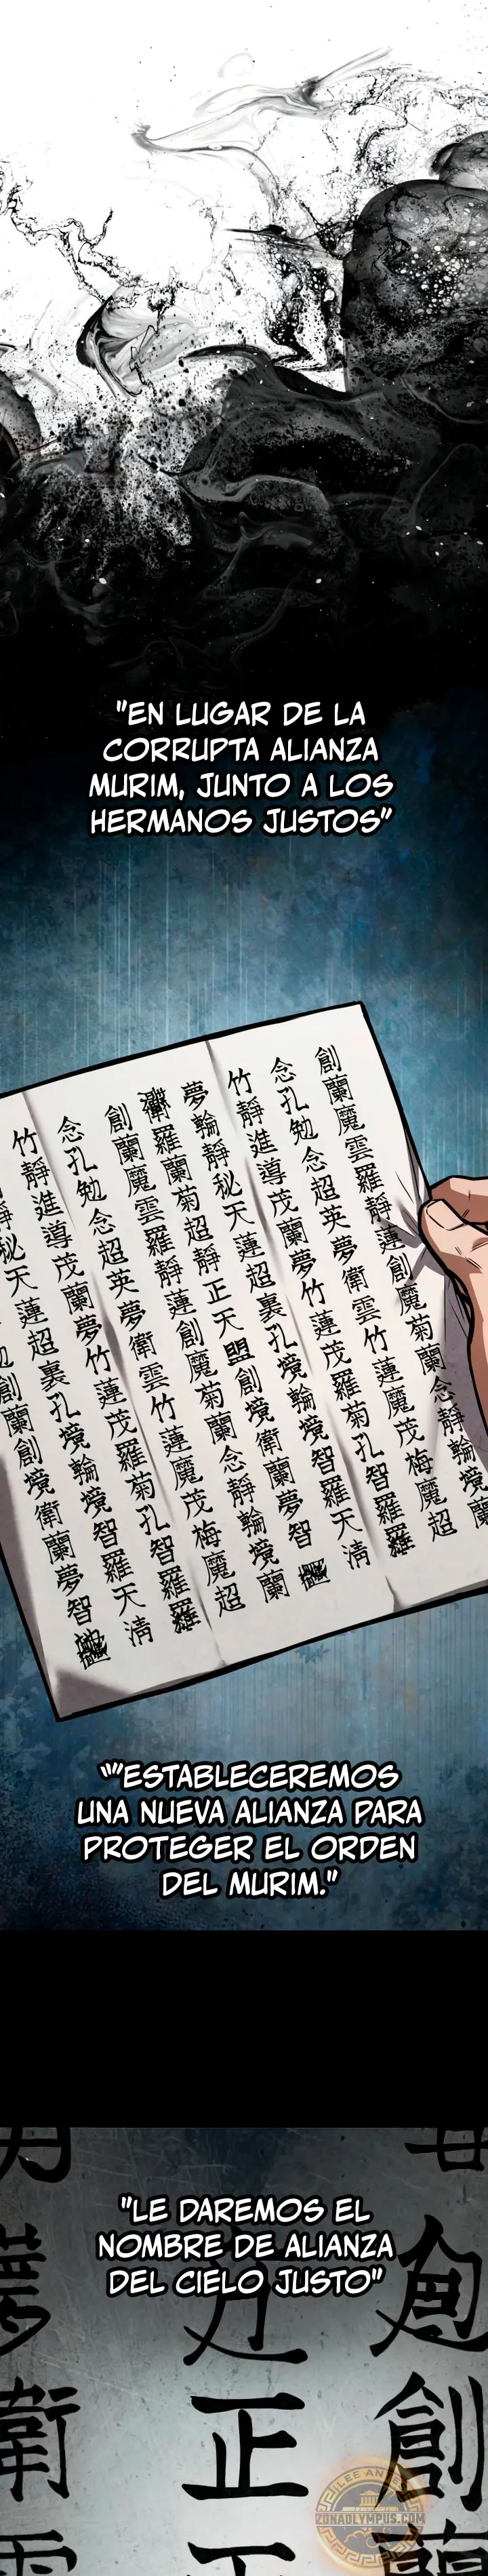 "EN LUGAR DE LA
CORRUPTA ALIANZA
MURIM, JUNTO A LOS
HERMANOS JUSTOS"
創蘭魔雲羅靜蓮創魔菊蘭念靜輪境蘭
念孔勉念超英夢衛雲竹蓮魔茂梅魔超
竹靜進導茂蘭夢竹蓮茂羅菊孔智羅羅
夢輪靜秘天蓮超裏孔境輪境智羅天淸
羅蘭菊超靜正天盟創境衛蘭夢智
創蘭魔雲羅靜蓮創魔菊蘭念靜輪境蘭
念孔勉念超英夢衛雲竹蓮魔茂梅魔超
竹靜進導茂蘭夢竹蓮茂羅菊孔智羅羅
靜秘天蓮超裏孔境輪境智羅天淸
創蘭創境衛蘭夢智
""ESTABLECEREMOS
UNA NUEVA ALIANZA PARA
PROTEGER EL ORDEN
DEL MURIM."
"LE DAREMOS EL
NOMBRE DE ALIANZA
DEL CIELO JUSTO"
創
正
衛
LEE ANTES
ZONAOLYMPUS.COM